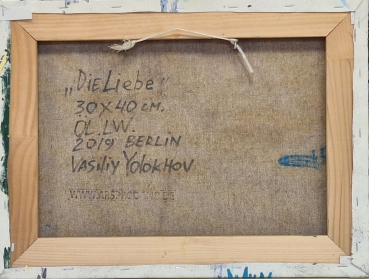 „DIE Liebe"
30X40 CM.
ÖL. LW.
2019 BERLIN
VASILIY YOLOKHOV